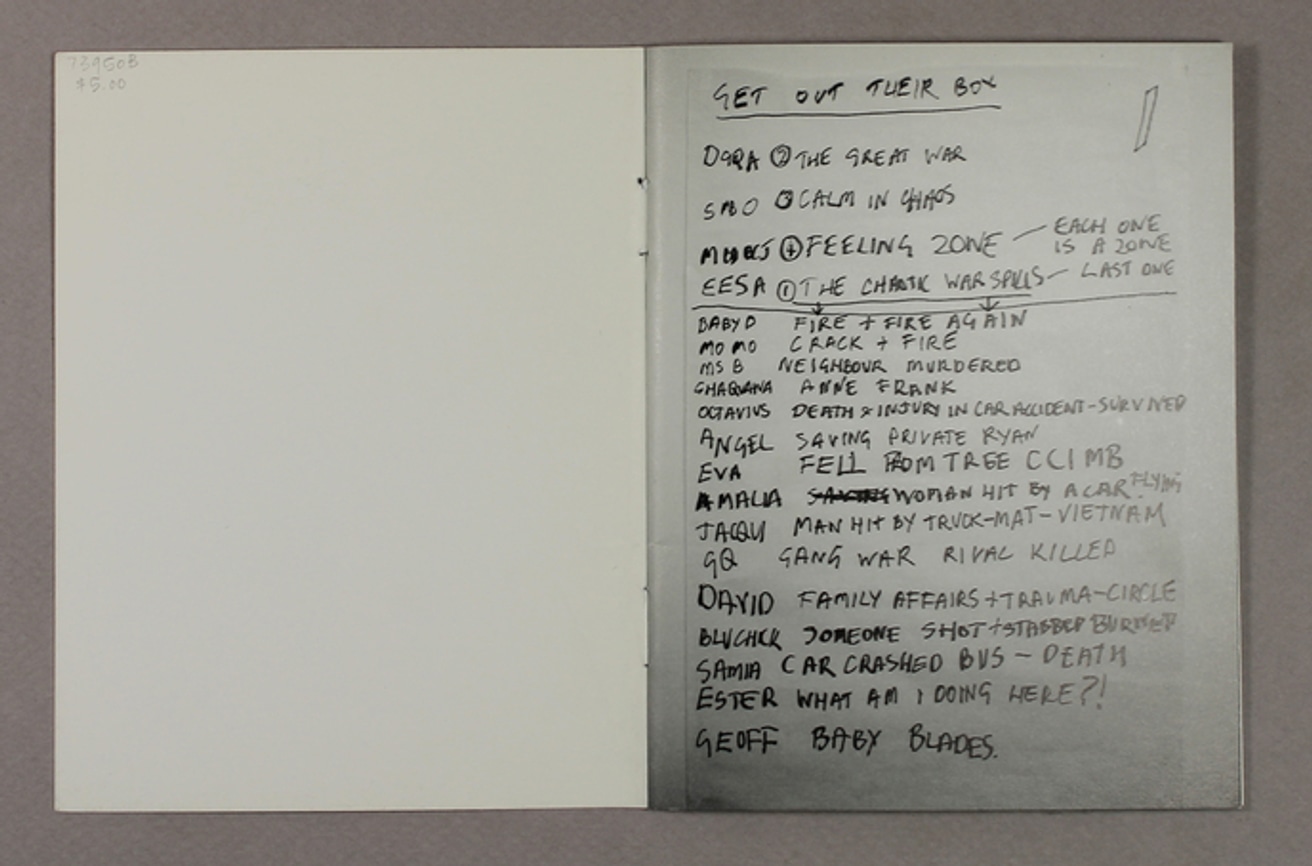 73950B
$5.00
GET OUT THEIR BOX
② THE GREAT WAR
SMBO ③ CALM IN CHAOS
④ FEELING ZONE — EACH ONE
IS A ZONE
EESA ① THE CHAOTIC WAR SPILLS — LAST ONE
BABY D FIRE + FIRE AGAIN
MO MO CRACK + FIRE
MS B NEIGHBOUR MURDERED
SHAQUANA ANNE FRANK
OCTAVIUS DEATH & INJURY IN CAR ACCIDENT-SURVIVED
ANGEL SAVING PRIVATE RYAN
EVA FELL FROM TREE CLIMB
AMALIA WOMAN HIT BY A CAR FLYING
JACQUI MAN HIT BY TRUCK-MAT-VIETNAM
GQ GANG WAR RIVAL KILLED
DAVID FAMILY AFFAIRS + TRAUMA-CIRCLE
SOMEONE SHOT + STABBED BURNED
SAMIA CAR CRASHED BUS - DEATH
ESTER WHAT AM I DOING HERE?!
GEOFF BABY BLADES.